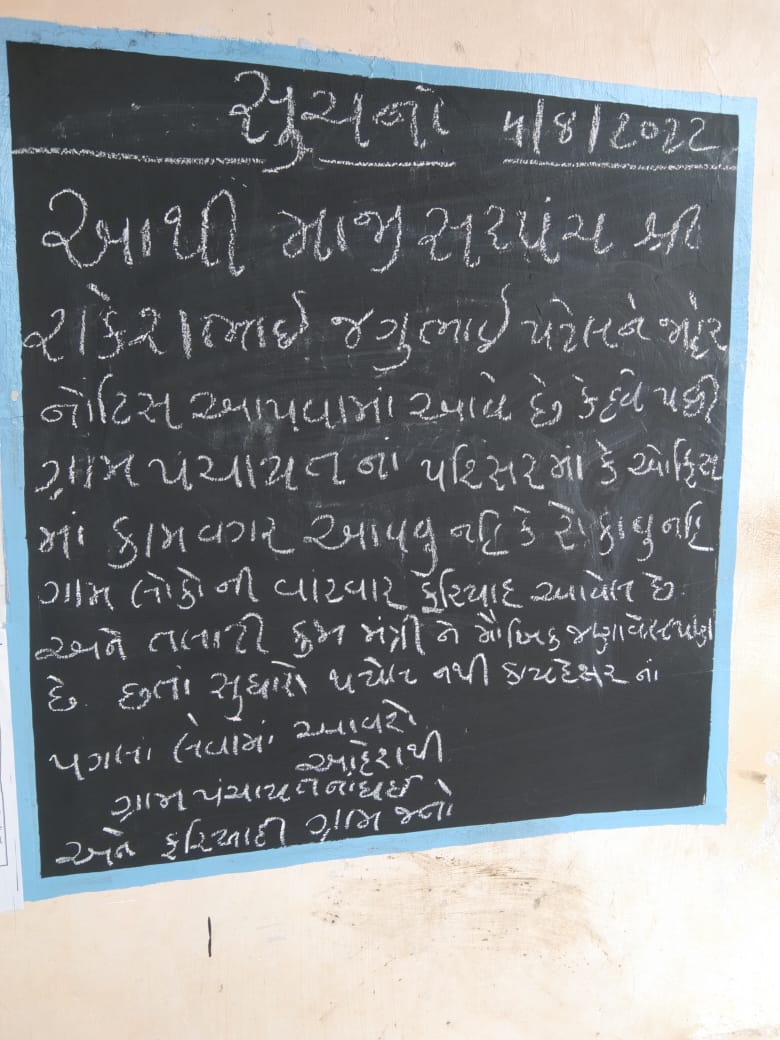 સુચનો ૫/૪/૨૦૨૨
આથી માજી સરપંચ શ્રી
રાકેશભાઈ જગુભાઈ પટેલને જાહેર
નોટિસ આપવામાં આવે છે કે હવે પછી
ગ્રામ પંચાયત નાં પરિસરમાં કે ઓફિસ
માં કામ વગર આવવુ નહિ કે રોકાવુ નહિ
ગામ લોકો ની વારંવાર ફરિયાદ આવેલ છે
અને તલાટી ક્રમ મંત્રી ને મૌખિક જણાવેલ પણ
છે. છતાં સુધારો થયેલ નથી કાયદેસર નાં
પગલાં લેવામાં આવશે
આદેશથી
ગ્રામ પંચાયત
અને ફરિઆદી ગ્રામ જનો